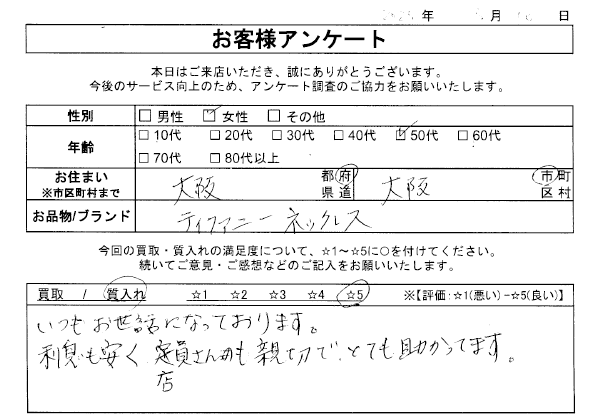 年 月 日
お客様アンケート
本日はご来店いただき、誠にありがとうございます。
今後のサービス向上のため、アンケート調査のご協力をお願いいたします。
性別 □ 男性 ☑ 女性 □ その他
年齢 □ 10代 □ 20代 □ 30代 □ 40代 ☑ 50代 □ 60代
□ 70代 □ 80代以上
お住まい 大阪 都府 大阪 市町
※市区町村まで 県道 区村
お品物/ブランド ティファニー ネックレス
今回の買取・質入れの満足度について、☆1〜☆5に○を付けてください。
続いてご意見・ご感想などのご記入をお願いいたします。
買取 / 質入れ ☆1 ☆2 ☆3 ☆4 ☆5 ※【評価:☆1(悪い)−☆5(良い)】
いつもお世話になっております。
利息も安く 店員さんも親切で、とても助かってます。